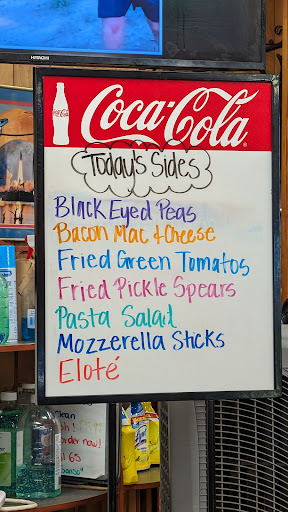 HITACHI
Coca-Cola
Today's Sides
Black Eyed Peas
Bacon Mac & Cheese
Fried Green Tomatos
Fried Pickle Spears
Pasta Salad
Mozzerella Sticks
Eloté
order now!